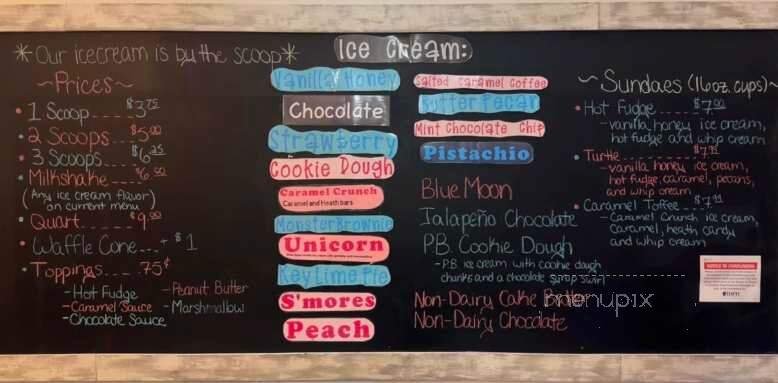 *Our icecream is by the scoop*
~Prices~
• 1 Scoop.....$3.75
• 2 Scoops....$5.00
• 3 Scoops....$6.25
• Milkshake....$6.50
(Any ice cream flavor
on current menu)
• Quart......$9.00
• Waffle Cone...+ $1
• Toppings.... 75¢
-Hot Fudge
-Caramel Sauce
-Chocolate Sauce
-Peanut Butter
-Marshmallow
Ice Cream:
Vanilla Honey
Chocolate
Strawberry
Cookie Dough
Caramel Crunch
Caramel and Heath bars
Monster Brownie
Unicorn
Key Lime Pie
S'mores
Peach
Salted Caramel Coffee
Butter Pecan
Mint Chocolate Chip
Pistachio
Blue Moon
Jalapeño Chocolate
P.B. Cookie Dough
-P.B. ice cream with cookie dough
chunks and a chocolate syrup swirl
Non-Dairy Cake Batter
Non-Dairy Chocolate
~Sundaes (16oz. cups)~
• Hot Fudge
-vanilla honey ice cream,
hot fudge and whip cream
• Turtle
-vanilla honey ice cream,
hot fudge, caramel, pecans,
and whip cream
• Caramel Toffee
-Caramel Crunch ice cream,
caramel, heath candy
and whip cream
menupix